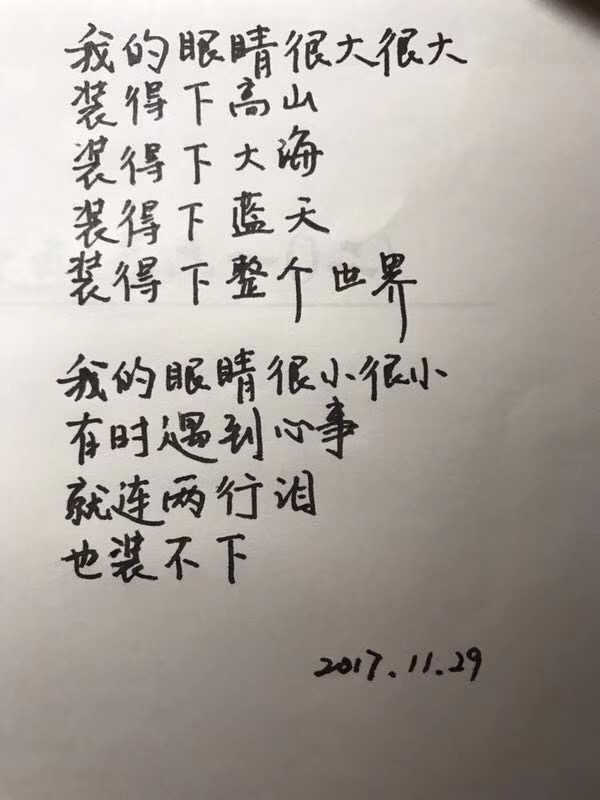 我的眼睛很大很大
装得下高山
装得下大海
装得下蓝天
装得下整个世界
我的眼睛很小很小
有时遇到心事
就连两行泪
也装不下
2017.11.29